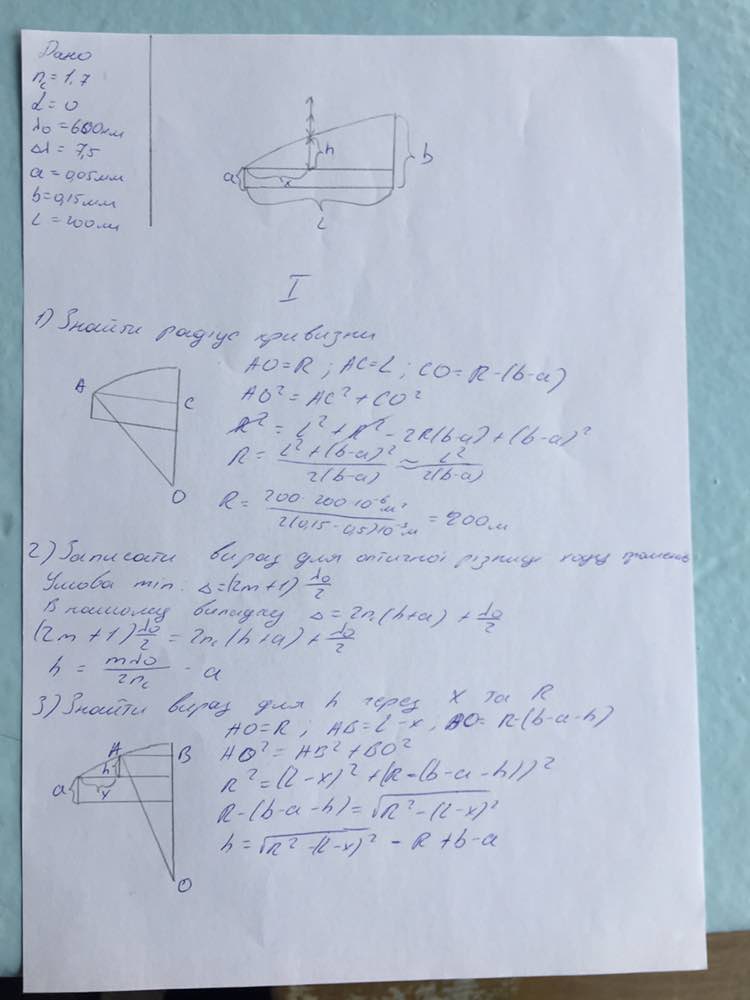 Дано
n_c = 1,7
α = 0
λ₀ = 600 нм
Δλ = 7,5
a = 0,05 мм
b = 0,15 мм
L = 200 мм
a
x
h
b
L
I
1) Знайти радіус кривизни
A
C
O
AO = R ; AC = L ; CO = R - (b-a)
AO² = AC² + CO²
R² = L² + R² - 2R(b-a) + (b-a)²
R = (L² + (b-a)²)/(2(b-a)) ≈ L²/(2(b-a))
R = (200·200·10⁻⁶ м²)/(2(0,15-0,5)10⁻³ м) = 200 м
2) Записати вираз для оптичної різниці ходу променів
Умова min: Δ = (2m+1) λ₀/2
В нашому випадку Δ = 2n_c(h+a) + λ₀/2
(2m+1) λ₀/2 = 2n_c(h+a) + λ₀/2
h = mλ₀/2n_c - a
3) Знайти вираз для h через x та R
A
B
h
a
x
O
AO = R ; AB = L-x ; BO = R-(b-a-h)
AO² = AB² + BO²
R² = (L-x)² + (R-(b-a-h))²
R-(b-a-h) = √(R²-(L-x)²)
h = √(R²-(L-x)²) - R + b-a